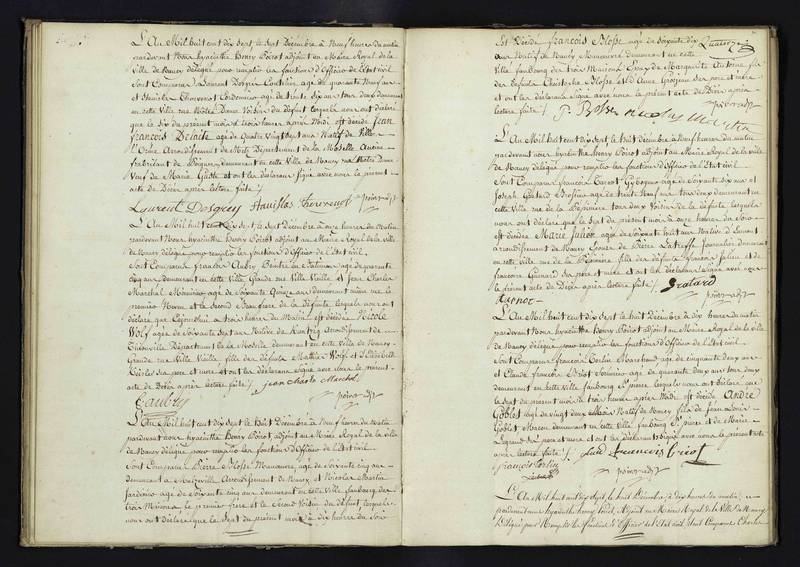 L'An Mil huit cent dix sept le sept Décembre à neuf heures du matin
pardevant Nous hyacinthe Henry Poirot adjoint au Maire Royal de la
Ville de Nancy délégué pour remplir les fonctions d'Officier de l'Etat civil
Sont Comparus Laurent Dosgrey agé de quarante Neuf ans
et Stanislas Thouvenot Cordonnier agé de trente six ans tous deux demeurant
en cette Ville rue Notre Dame Voisins du défunt lesquels nous ont déclaré
que le six du présent mois à trois heures après Midi est décédé Jean
François Delaite agé de Quatre Vingt sept ans Natif de Ville
l'Orme Arrondissement de Metz Département de la Moselle Ancien
demeurant en cette Ville de Nancy rue Notre Dame
Veuf de Marie et ont les déclarans signé avec nous le présent
acte de Décès après lecture faite /.
Laurent Dosgrey Stanislas Thouvenot Poirot adjt
L'An Mil huit cent dix sept le sept Décembre à onze heures du Matin
pardevant Nous hyacinthe Henry Poirot adjoint au Maire Royal de la Ville
de Nancy délégué pour remplir les fonctions d'Officier de l'Etat civil
Sont Comparus François Aubry Peintre en agé de quarante
cinq ans demeurant en cette Ville Grande rue Ville Vieille et Jean Charles
Marchal Menuisier agé de Soixante Quinze ans demeurant même rue le
premier Neveu et le second Beau frère de la défunte lesquels nous ont
déclaré que Cejourd'hui à trois heures du Matin est décédée Nicole
Wolf agée de Soixante Sept ans Native de Kuntzig Arrondissement de
Thionville Département de la Moselle demeurant en cette Ville de Nancy
Grande rue Ville Vieille fille des défunts Mathis Wolf et Elisabeth
ses père et mère et ont les déclarans signé avec nous le présent
acte de Décès après lecture faite /. Jean Charle Marchal
F aubry Poirot adjt
L'An Mil huit cent dix sept le huit Décembre à neuf heures du Matin
pardevant nous hyacinthe Henry Poirot, adjoint au Maire Royal de la Ville
de Nancy délégué pour remplir les fonctions d'Officier de l'Etat civil
Sont Comparus Pierre Blosse Manœuvre, agé de Soixante cinq ans
demeurant à Maxéville Arrondissement de Nancy et Nicolas Martin
Jardinier agé de Soixante cinq ans demeurant en cette Ville faubourg des
trois Maisons le premier frère et le second Voisin du défunt, lesquels
nous ont déclaré que le Sept du présent mois à dix heures du Soir
Est Décédé François Blosse agé de Soixante dix Quatorze
Natif de Nancy Manœuvre demeurant en cette
Ville faubourg des trois Maisons Epoux de Marguerite Antoine fils
des défunts Christophe Blosse et d'Anne ses père et mère
et ont les déclarans signé avec nous le présent acte de Décès après
lecture faite /. Poirot adjt
P. Blosse nicolas Martin
L'An Mil huit cent dix sept, le huit décembre à neuf heures du matin
pardevant nous, hyacinthe Henry Poirot adjoint au Maire Royal de la Ville
de Nancy délégué pour remplir les fonctions d'Officier de l'Etat civil
Sont Comparus François agé de Soixante six ans et
Joseph Gratard agé de trente Neuf ans tous deux demeurant en
cette Ville rue de la Pépinière tous deux Voisins de la défunte lesquels
nous ont déclaré que le Sept du présent mois à onze heures du Soir
est décédée Marie Julion agée de Soixante huit ans Native de
arrondissement de Nancy Epouse de Pierre journalier demeurant
en cette Ville rue de la Pépinière fille des défunts François Julion et de
Françoise ses père et mère et ont les déclarans signé avec nous
le présent acte de Décès après lecture faite /. Gratard
Poirot adjt
L'An Mil huit cent dix sept le huit Décembre à dix heures du matin
pardevant Nous hyacinthe Henry Poirot adjoint au Maire Royal de la Ville
de Nancy délégué pour remplir les fonctions d'Officier de l'Etat civil
Sont Comparus François Marchand agé de cinquante deux ans
et Claude François Briot agé de quarante deux ans tous deux
demeurant en cette Ville faubourg St pierre, lesquels nous ont déclaré que
le Sept du présent mois à trois heures après Midi est décédé André
Goblet agé de vingt deux Mois Natif de Nancy fils de Jean
Goblet Maçon demeurant en cette Ville faubourg St pierre et de Marie
ses père et mère et ont les déclarans signé avec nous le présent acte
après lecture faite /. Claude francois briot
Poirot adjt
L'An Mil huit cent dix sept, le huit Décembre à dix heures du matin,
pardevant nous hyacinthe henry Poirot, Adjoint au Maire Royal de la Ville de Nancy
Délégué pour Remplir les fonctions d'Officier de l'Etat civil Sont Comparus Charles